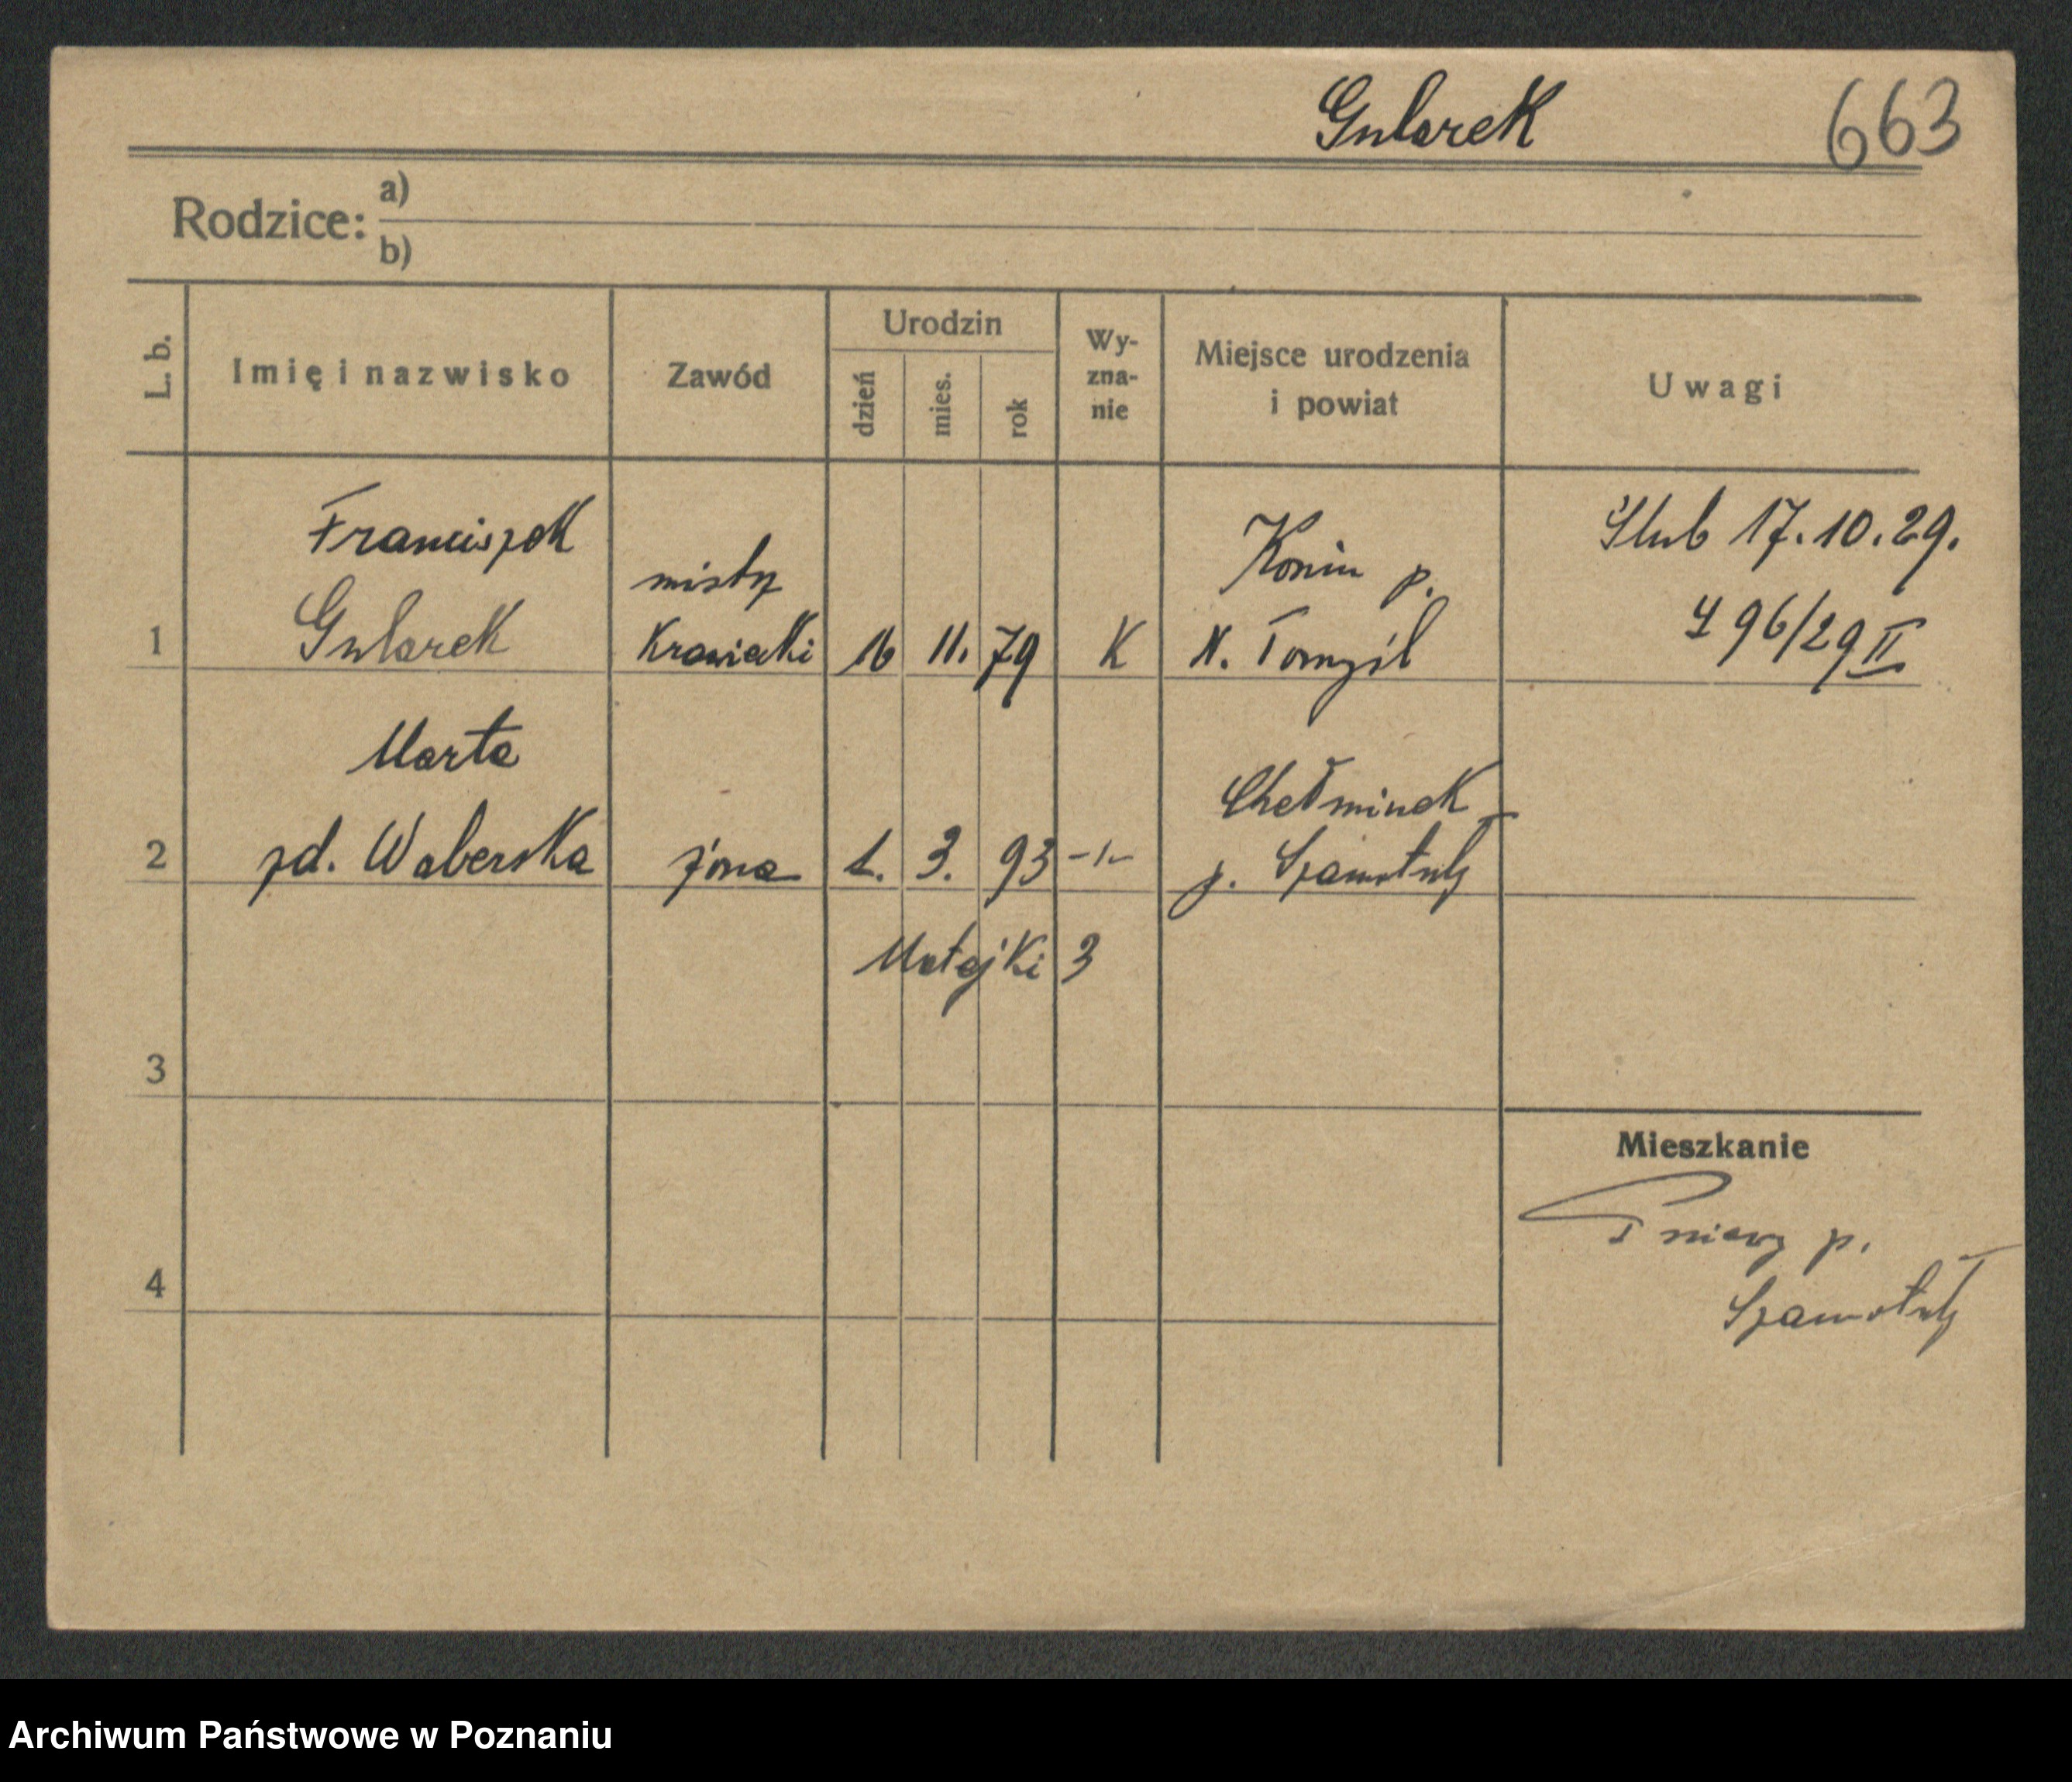 Gularek 663
Rodzice: a)
b)
L. b.
Imię i nazwisko
Zawód
Urodzin
dzień
mies.
rok
Wy-
zna-
nie
Miejsce urodzenia
i powiat
Uwagi
1
Franciszek
Gularek
mistrz
Krawiecki
16 11. 79
K
Konin p.
N. Tomyśl
Ślub 17.10.29.
96/29 II
2
Marta
zd. Waberska
żona
1. 3. 93
-"-
Chełminek
p. Szamotuły
Matejki 3
3
4
Mieszkanie
Pniewy p.
Szamotuły
Archiwum Państwowe w Poznaniu